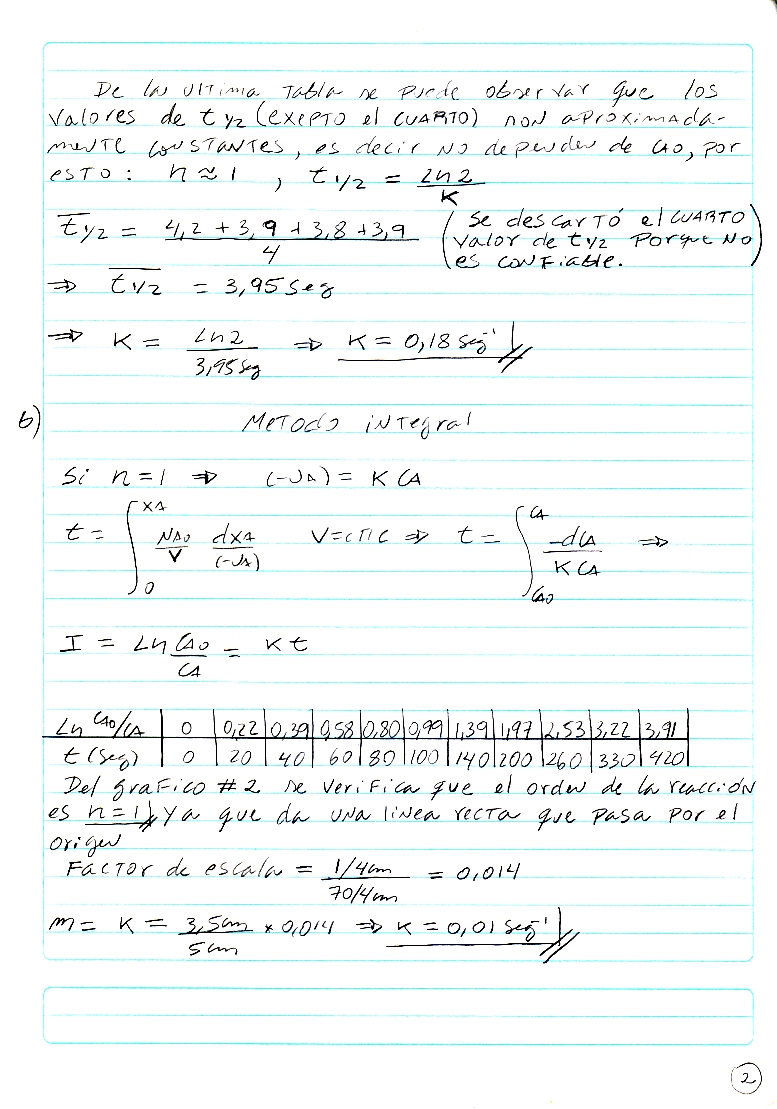 De la ultima tabla se puede observar que los
valores de t 1/2 (exepto el cuarto) son aproximada-
mente constantes, es decir no dependen de CAO, por
esto: n ≈ 1 , t 1/2 = Ln2/K
t̅ 1/2 = (4,2 + 3,9 + 3,8 + 3,9)/4 (Se descartó el cuarto
valor de t 1/2 porque no
es confiable.)
⇒ t̅ 1/2 = 3,95 seg
⇒ K = Ln2/3,95 seg ⇒ K = 0,18 seg⁻¹
b) Metodo integral
Si n = 1 ⇒ (-rA) = K CA
t = ∫₀^XA NAO/V dXA/(-rA) V = cte ⇒ t = ∫_CAO^CA -dCA/(K CA) ⇒
I = Ln CAO/CA = Kt
Ln CAO/CA | 0 | 0,22 | 0,39 | 0,58 | 0,80 | 0,99 | 1,39 | 1,97 | 2,53 | 3,22 | 3,91
t (seg) | 0 | 20 | 40 | 60 | 80 | 100 | 140 | 200 | 260 | 330 | 420
Del grafico #2 se verifica que el orden de la reacción
es n=1, ya que da una linea recta que pasa por el
origen
Factor de escala = (1/4cm)/(70/4cm) = 0,014
m = K = 3,5cm/5cm * 0,014 ⇒ K = 0,01 seg⁻¹
2